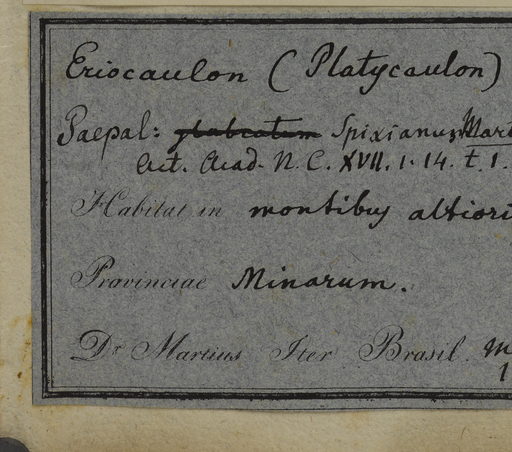 Eriocaulon (Platycaulon)
Paepal: Spixianus Mart
Act. Acad. N. C. XVII. 1. 14. t. 1.
Habitat in montibus altiori
Provinciae Minarum.
Dr Martius Iter Brasil. M
1